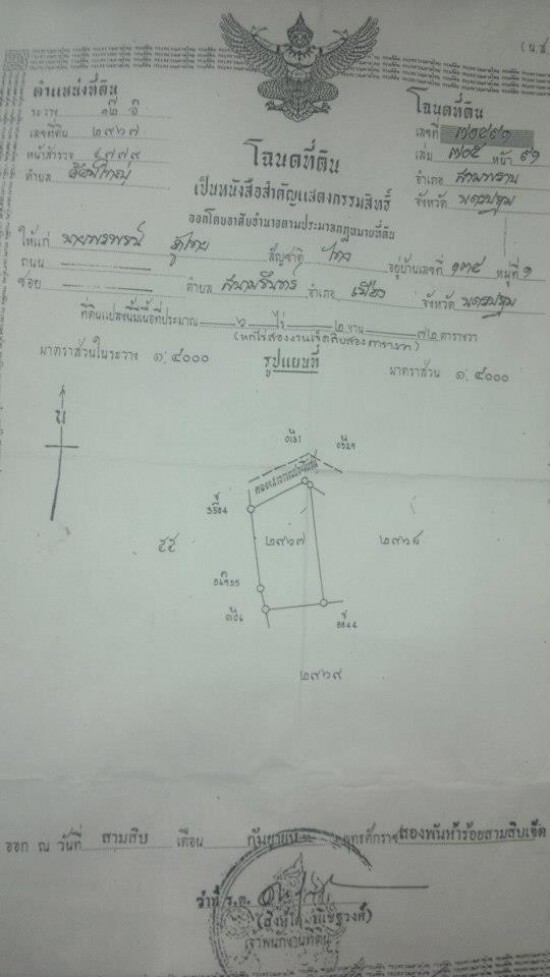 (น.ส
ตำแหน่งที่ดิน
ระวาง ๑๒
เลขที่ดิน ๒๙๖๗
หน้าสำรวจ ๔๗๗๙
ตำบล
โฉนดที่ดิน
เลขที่ ๗๐๔๙๑
เล่ม ๗๐๕ หน้า ๙๑
อำเภอ สามพราน
จังหวัด นครปฐม
โฉนดที่ดิน
เป็นหนังสือสำคัญแสดงกรรมสิทธิ์
ออกโดยอาศัยอำนาจตามประมวลกฎหมายที่ดิน
ให้แก่ สัญชาติ ไทย อยู่บ้านเลขที่ ๑๓๕ หมู่ที่ ๑
ถนน
ซอย ตำบล สนามจันทร์ อำเภอ เมือง จังหวัด นครปฐม
ที่ดินแปลงนี้มีเนื้อที่ประมาณ ๖ ไร่ ๒ งาน ๗๒ ตารางวา
(หกไร่สองงานเจ็ดสิบสองตารางวา)
มาตราส่วนในระวาง ๑: ๔๐๐๐ รูปแผนที่ มาตราส่วน ๑: ๔๐๐๐
น
๕๕
๒๙๖๗
๒๙๖๘
๒๙๖๙
ออก ณ วันที่ สามสิบ เดือน กันยายน พุทธศักราช สองพันห้าร้อยสามสิบเจ็ด
ว่าที่ ร.ต.
เจ้าพนักงานที่ดิน